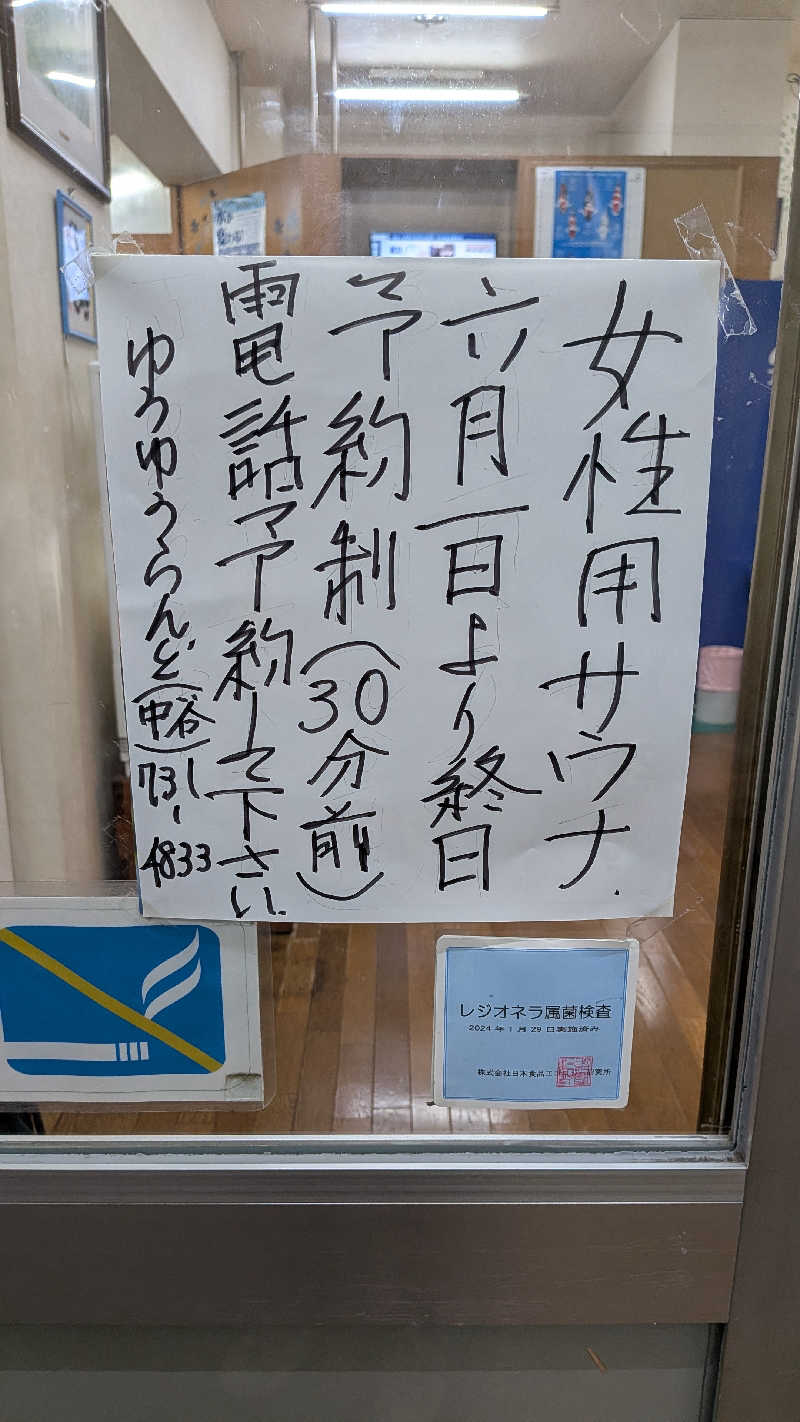 女性用サウナ
六月一日より終日
予約制(30分前)
電話予約して下さい
ゆうゆうらんど(中谷)731-4833
レジオネラ属菌検査
2024年1月29日実施済み